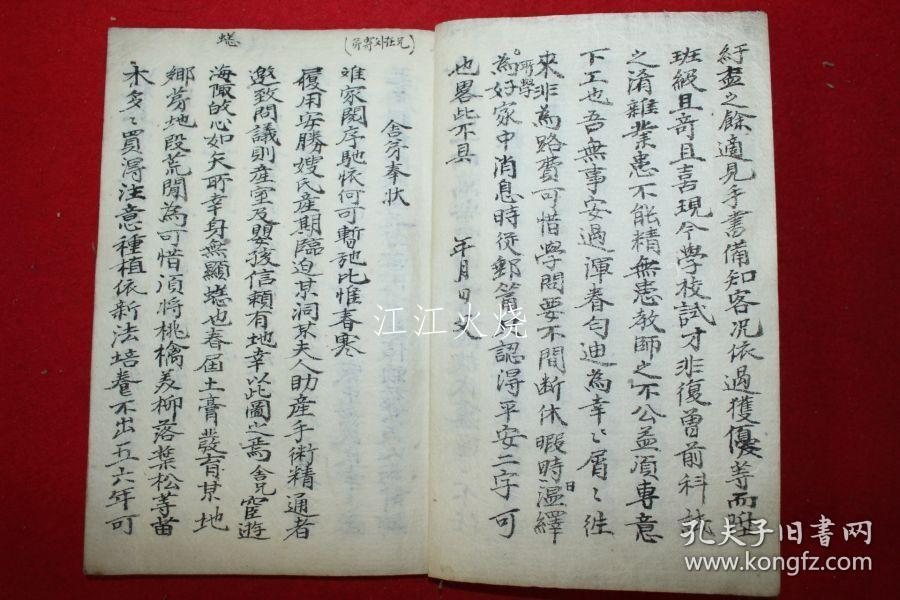 紆盡之餘適見手書備知客況依過獲優等而陞
班級且奇且喜現今學校試才非復曾前科
之淆雜業患不能精無患教師之不公益須專意
下工也吾無事安過渾眷勻迪為幸〻屑〻往
來非為路費可惜學問要不間斷休暇時日溫繹
所學
為好家中消息時從郵筒認得平安二字可
也畧此不具
年月日父
舍弟奉狀
(兄在外寄弟)
难家閱序馳恢何可暫弛比惟春寒
履用安勝嫂氏產期臨迫某洞某夫人助產手術精通者
邀致問議則產室及嬰孩信賴有地幸以此圖之焉舍兄宦遊
海陬故心如矢所幸身無顯蟋也春届土膏發育某地
蟋
鄉芽地段荒閒為可惜須將桃檎美柳落葉松等苗
木多〻買得注意種植依新法培養不出五六年可
江江火烧
孔夫子旧书网
www.kongfz.com